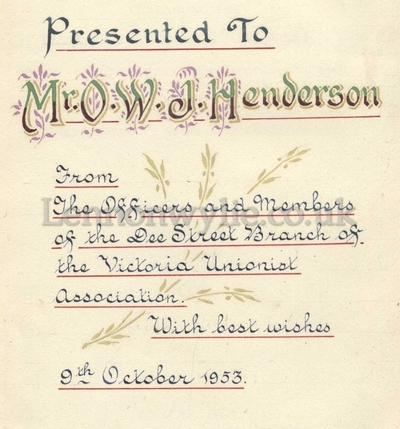 Presented To
Mr. O. W. J. Henderson
From
The Officers and Members
Lennonwylie.co.uk
of the Dee Street Branch of
the Victoria Unionist
Association.
With best wishes
9th October 1953.